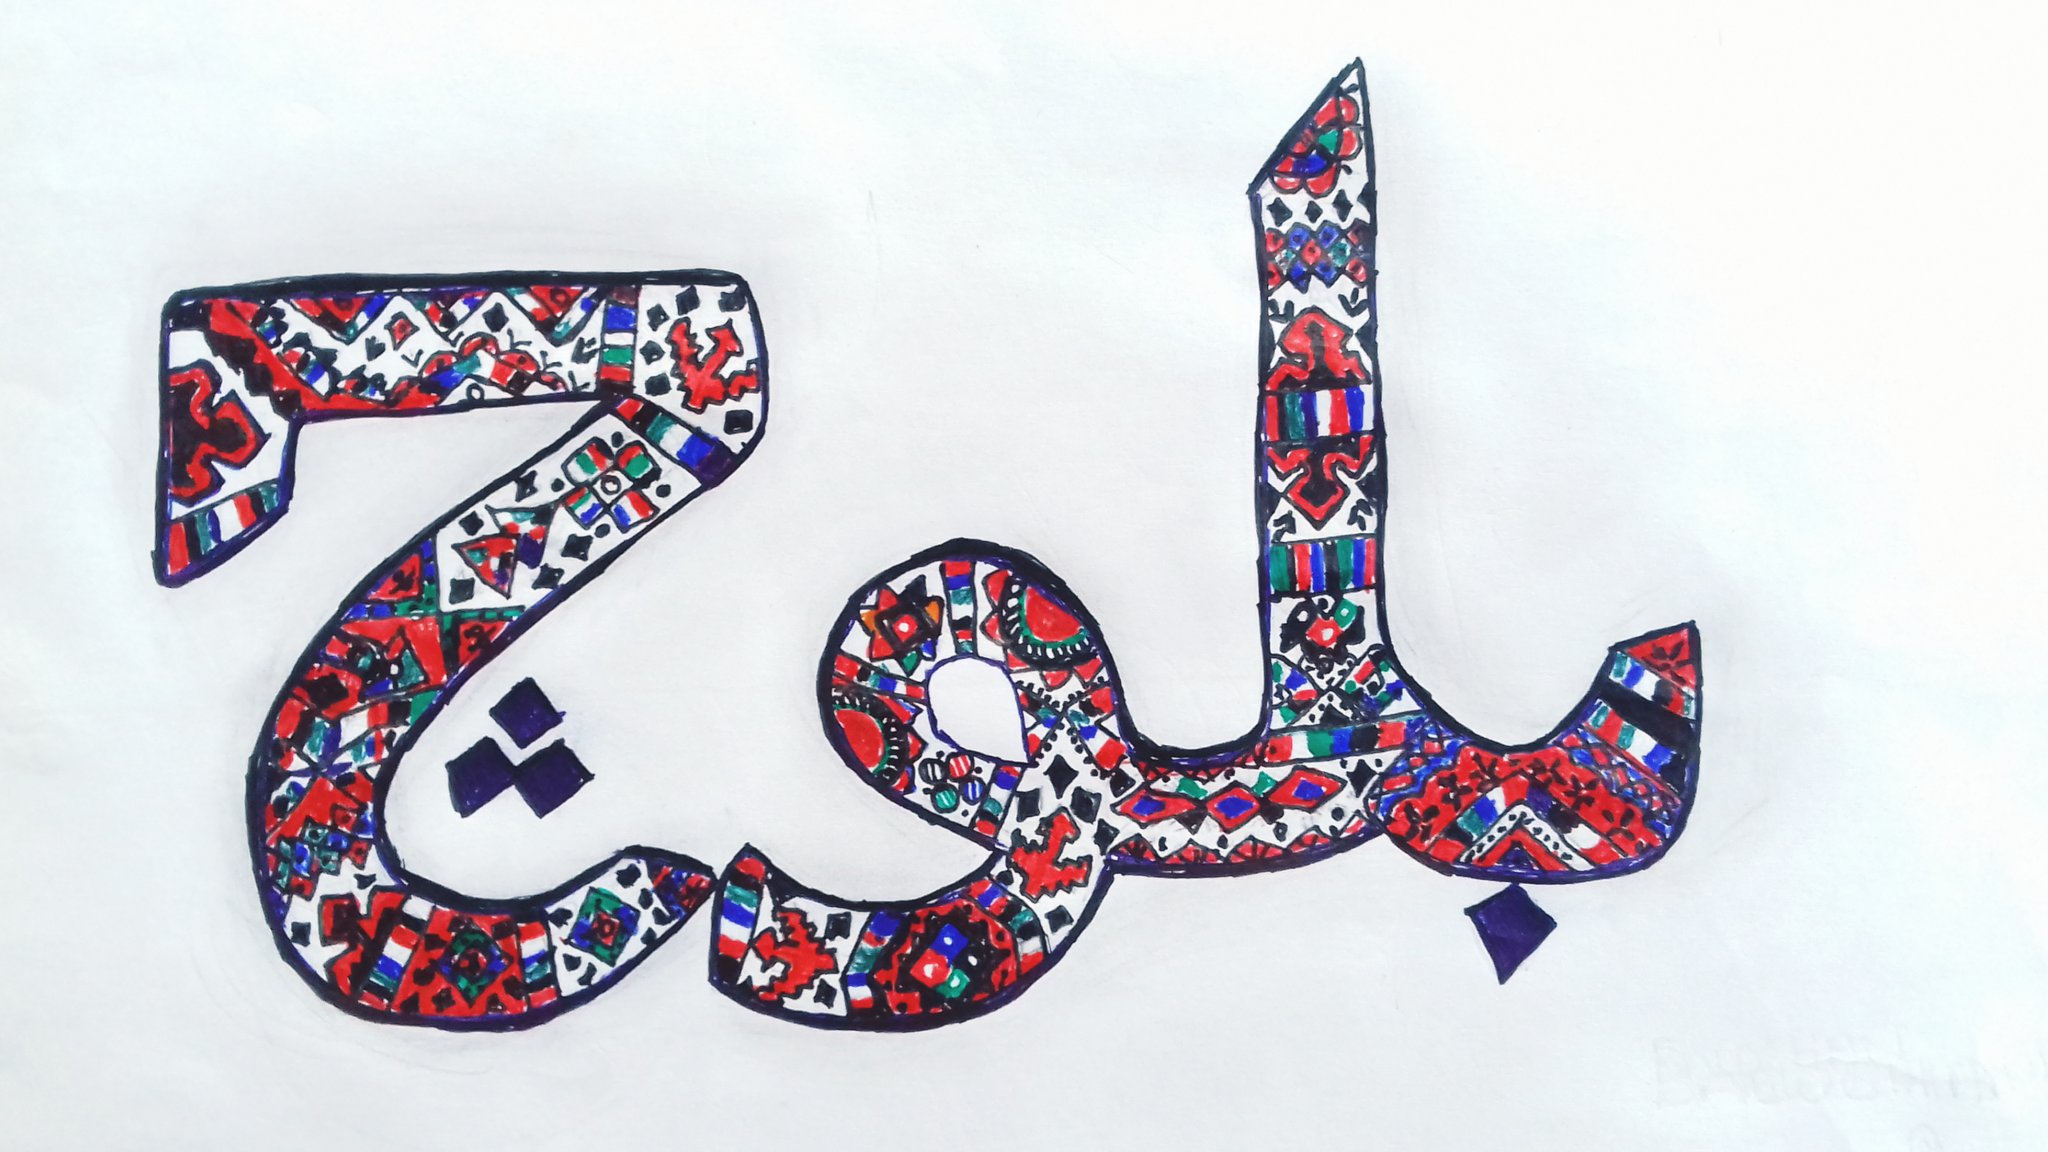 بلوچ